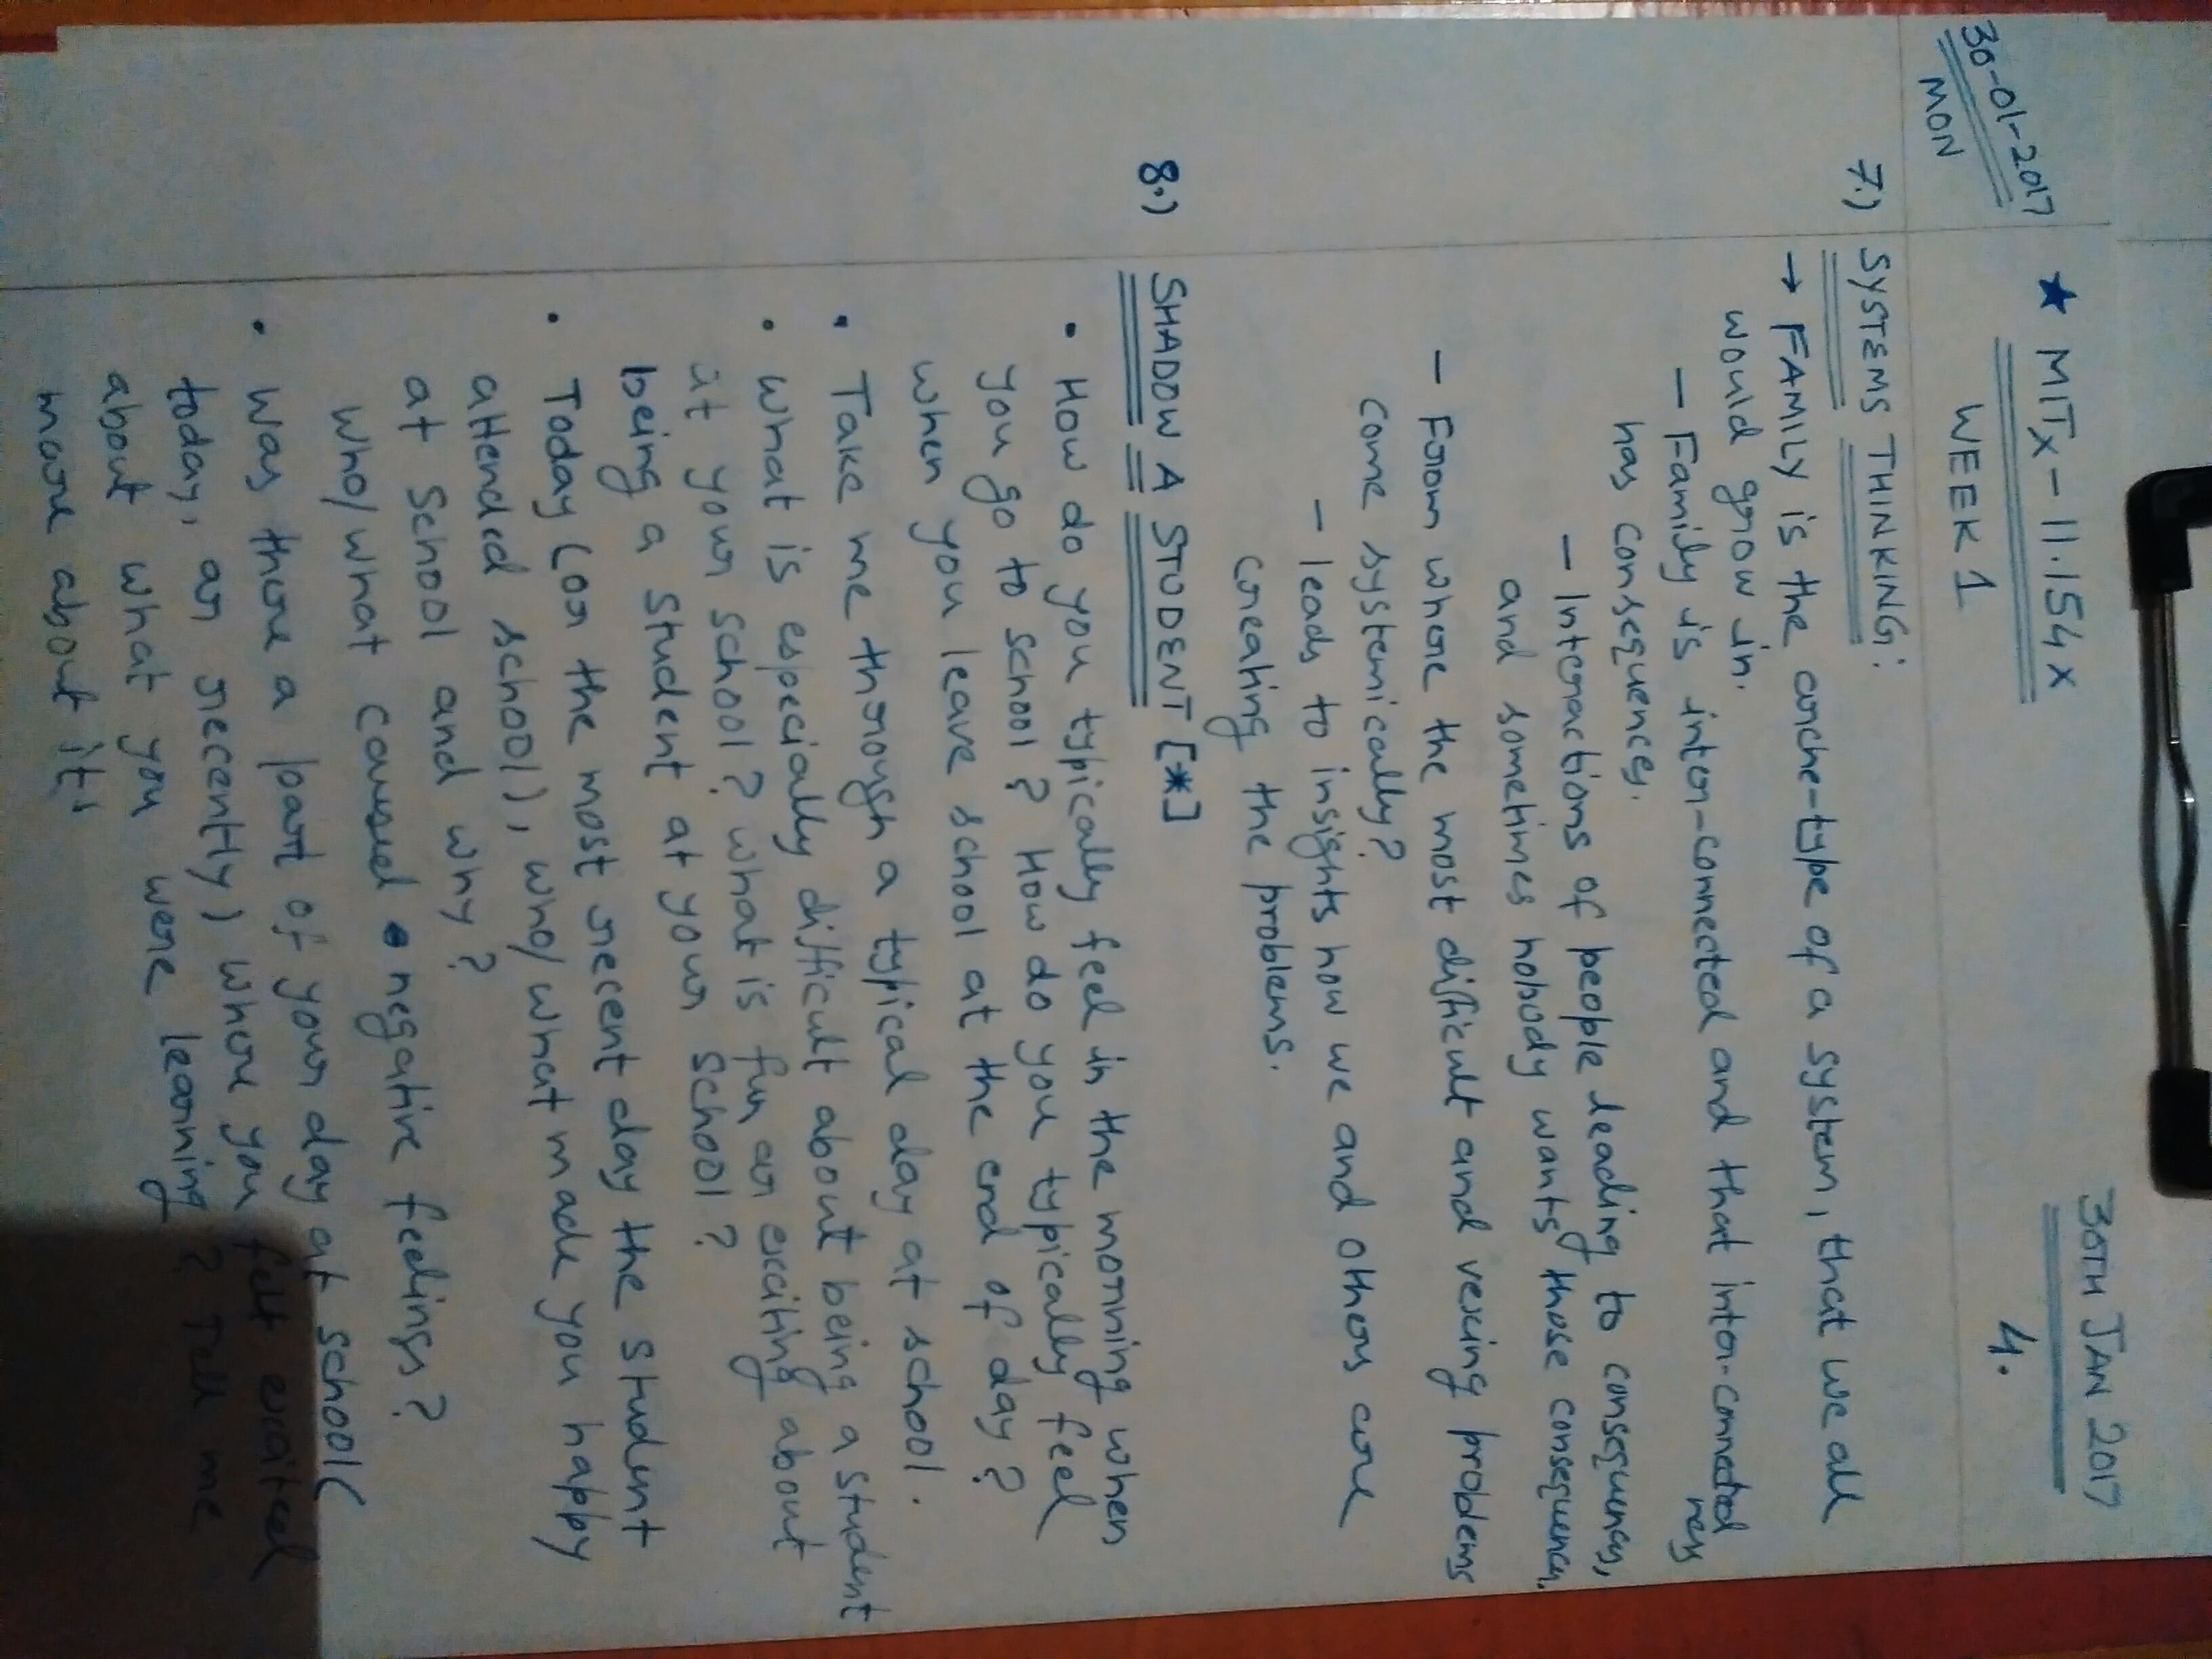 30TH JAN 2017
★ MITx - 11.154x
30-01-2017
4.
WEEK 1
MON
7.) SYSTEMS THINKING:
→ FAMILY is the arche-type of a system, that we all
would grow in.
- Family is inter-connected and that inter-connected
ness
has consequences.
- Interactions of people leading to consequences,
and sometimes nobody wants those consequences.
- From where the most difficult and vexing problems
come systemically?
- leads to insights how we and others are
creating the problems.
8.) SHADOW A STUDENT [*]
• How do you typically feel in the morning when
you go to school? How do you typically feel
when you leave school at the end of day?
• Take me through a typical day at school.
• What is especially difficult about being a student
at your school? What is fun or exciting about
being a student at your school?
• Today (or the most recent day the student
attended school), who/what made you happy
at School and why?
Who/what caused negative feelings?
• Was there a part of your day at school (
today, or recently) where you felt excited
about what you were learning? Tell me
more about it.